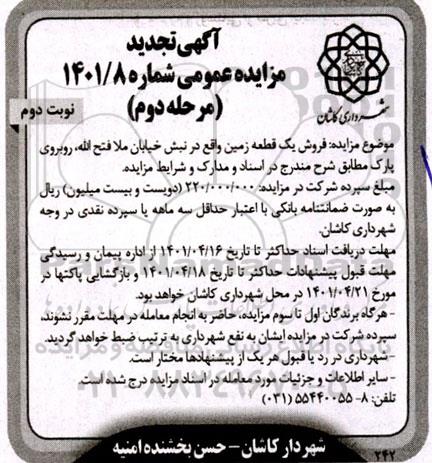 آگهی تجدید
مزایده عمومی شماره ۱۴۰۱/۸
(مرحله دوم)
نوبت دوم
شهرداری کاشان
موضوع مزایده: فروش یک قطعه زمین واقع در نبش خیابان ملا فتح الله، روبروی
پارک مطابق شرح مندرج در اسناد و مدارک و شرایط مزایده.
مبلغ سپرده شرکت در مزایده: ۲۲۰/۰۰۰/۰۰۰ (دویست و بیست میلیون) ریال
به صورت ضمانتنامه بانکی با اعتبار حداقل سه ماهه یا سپرده نقدی در وجه
شهرداری کاشان.
مهلت دریافت اسناد حداکثر تا تاریخ ۱۴۰۱/۰۴/۱۶ از اداره پیمان و رسیدگی
مهلت قبول پیشنهادات حداکثر تا تاریخ ۱۴۰۱/۰۴/۱۸ و بازگشایی پاکتها در
مورخ ۱۴۰۱/۰۴/۲۱ در محل شهرداری کاشان خواهد بود.
- هرگاه برندگان اول تا سوم مزایده، حاضر به انجام معامله در مهلت مقرر نشوند،
سپرده شرکت در مزایده ایشان به نفع شهرداری به ترتیب ضبط خواهد گردید.
- شهرداری در رد یا قبول هر یک از پیشنهادها مختار است.
- سایر اطلاعات و جزئیات مورد معامله در اسناد مزایده درج شده است.
تلفن: ۸-۵۵۴۴۰۰۵۵ (۰۳۱)
شهردار کاشان - حسن بخشنده امنیه
۲۴۲